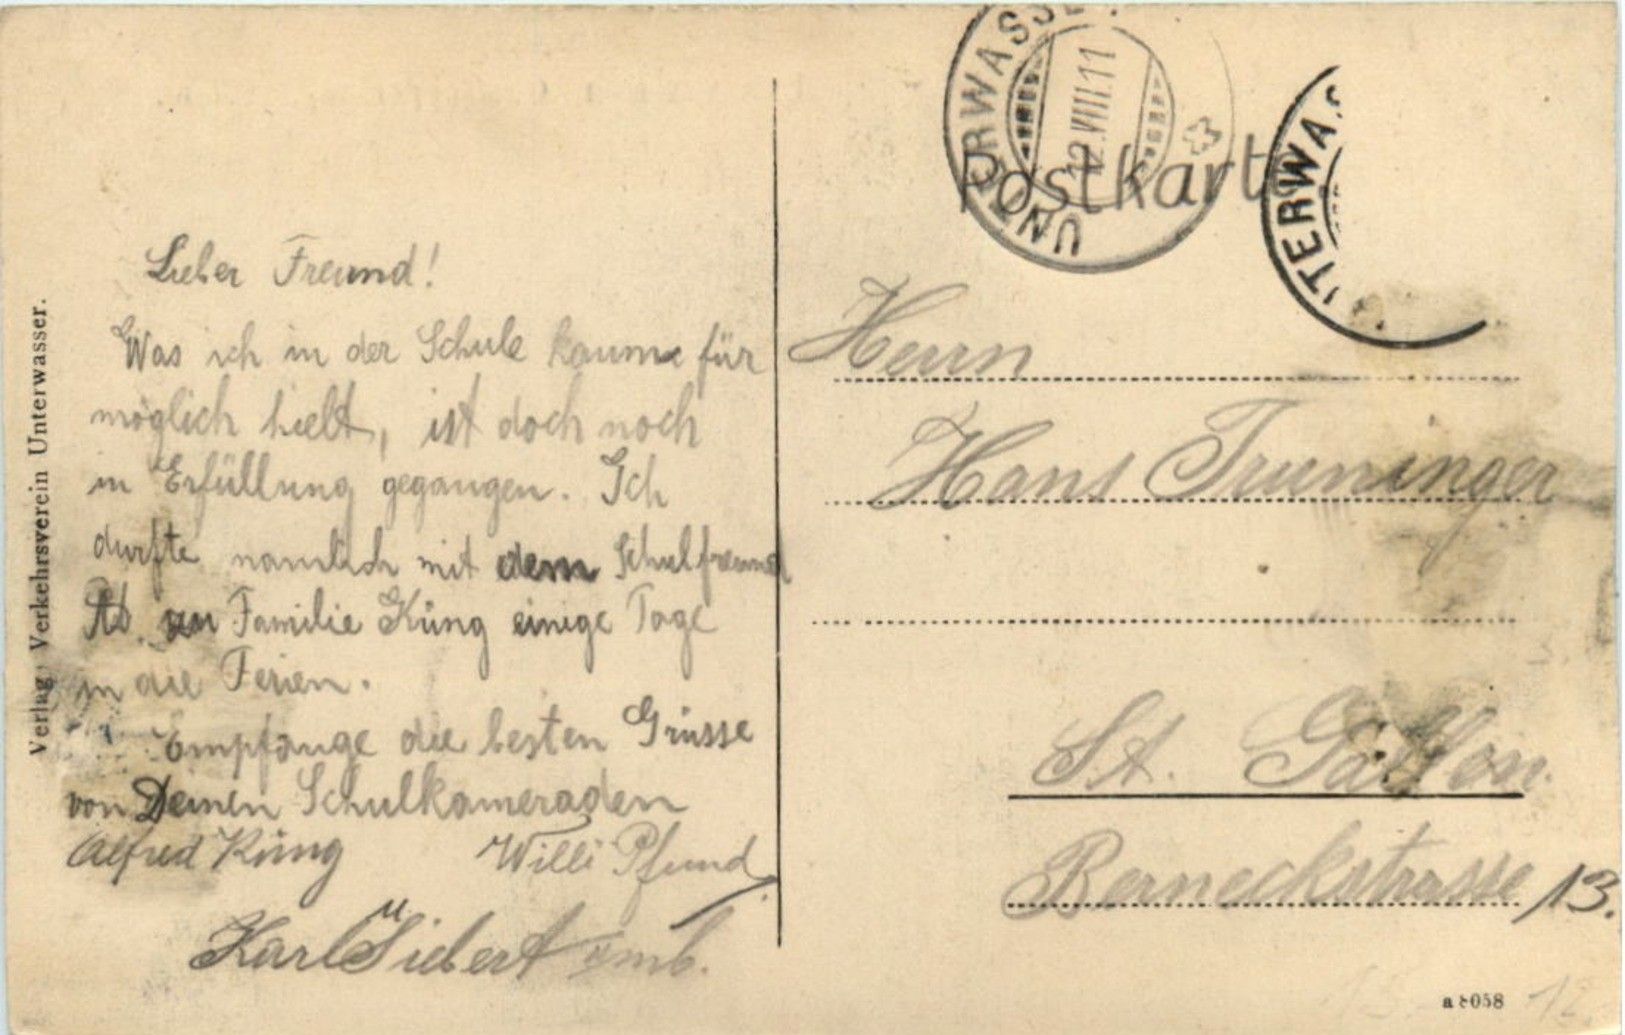 Verlag, Verkehrsverein Unterwasser.
Lieber Freund!
Was ich in der Schule kaum für
möglich hielt, ist doch noch
in Erfüllung gegangen. Ich
durfte namlich mit dem Schulfreund
zu Familie Küng einige Tage
in die Ferien.
Empfange die besten Grüsse
von Deinen Schulkameraden
Alfred Küng Willi Pfund
Karl Siebert
UNTERWASSE
12.VIII.11
TERWAS
Postkarte
Herrn
Hans Truninger
St. Gallen.
Berneckstrasse 13.
a 8058